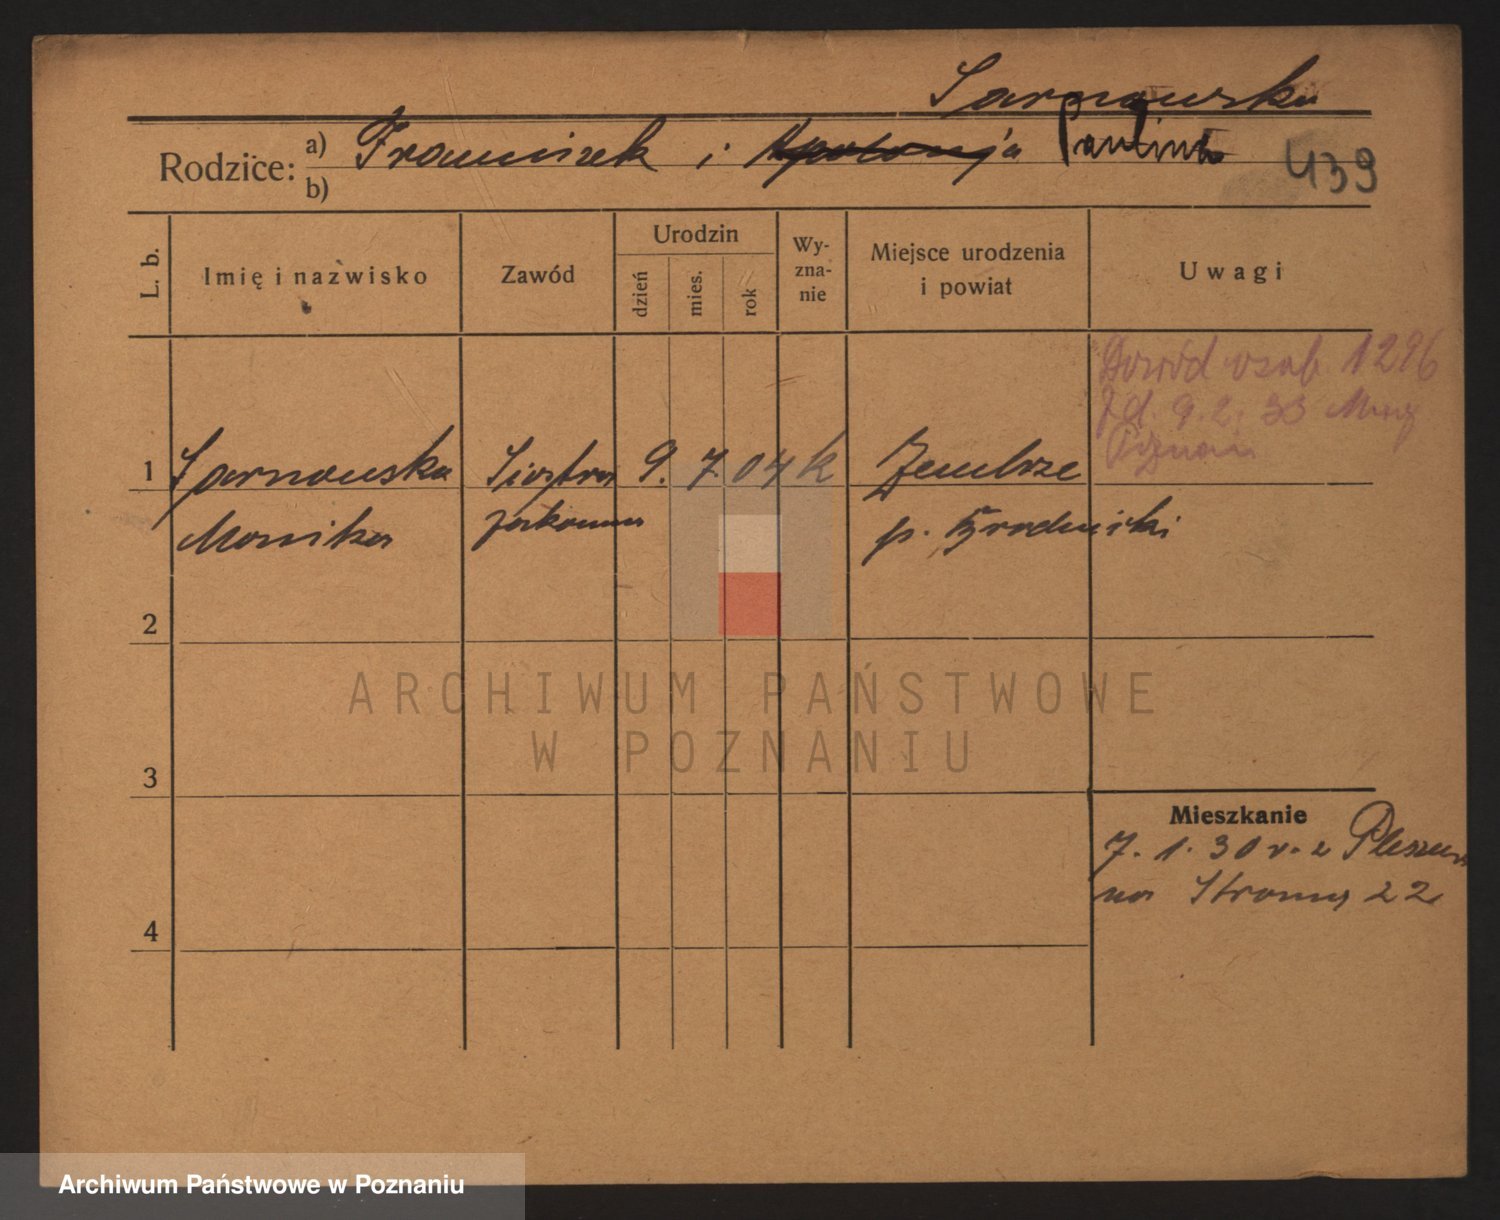 Sarnowska
Rodzice: a) Franciszek i Apolonja Paulina
b)
439
L. b.
Imię i nazwisko
Zawód
Urodzin
dzień
mies.
rok
Wy-
zna-
nie
Miejsce urodzenia
i powiat
Uwagi
Dowód osob. 1296
d. 9.2.33
Poznań
1 Sarnowska Siostra 9. 7 04 k Zembrze
Monika zakonna p. Brodnicki
2
3
4
Mieszkanie
7. 1. 30 r. z Pleszewa
na 22
ARCHIWUM PAŃSTWOWE
W POZNANIU
Archiwum Państwowe w Poznaniu